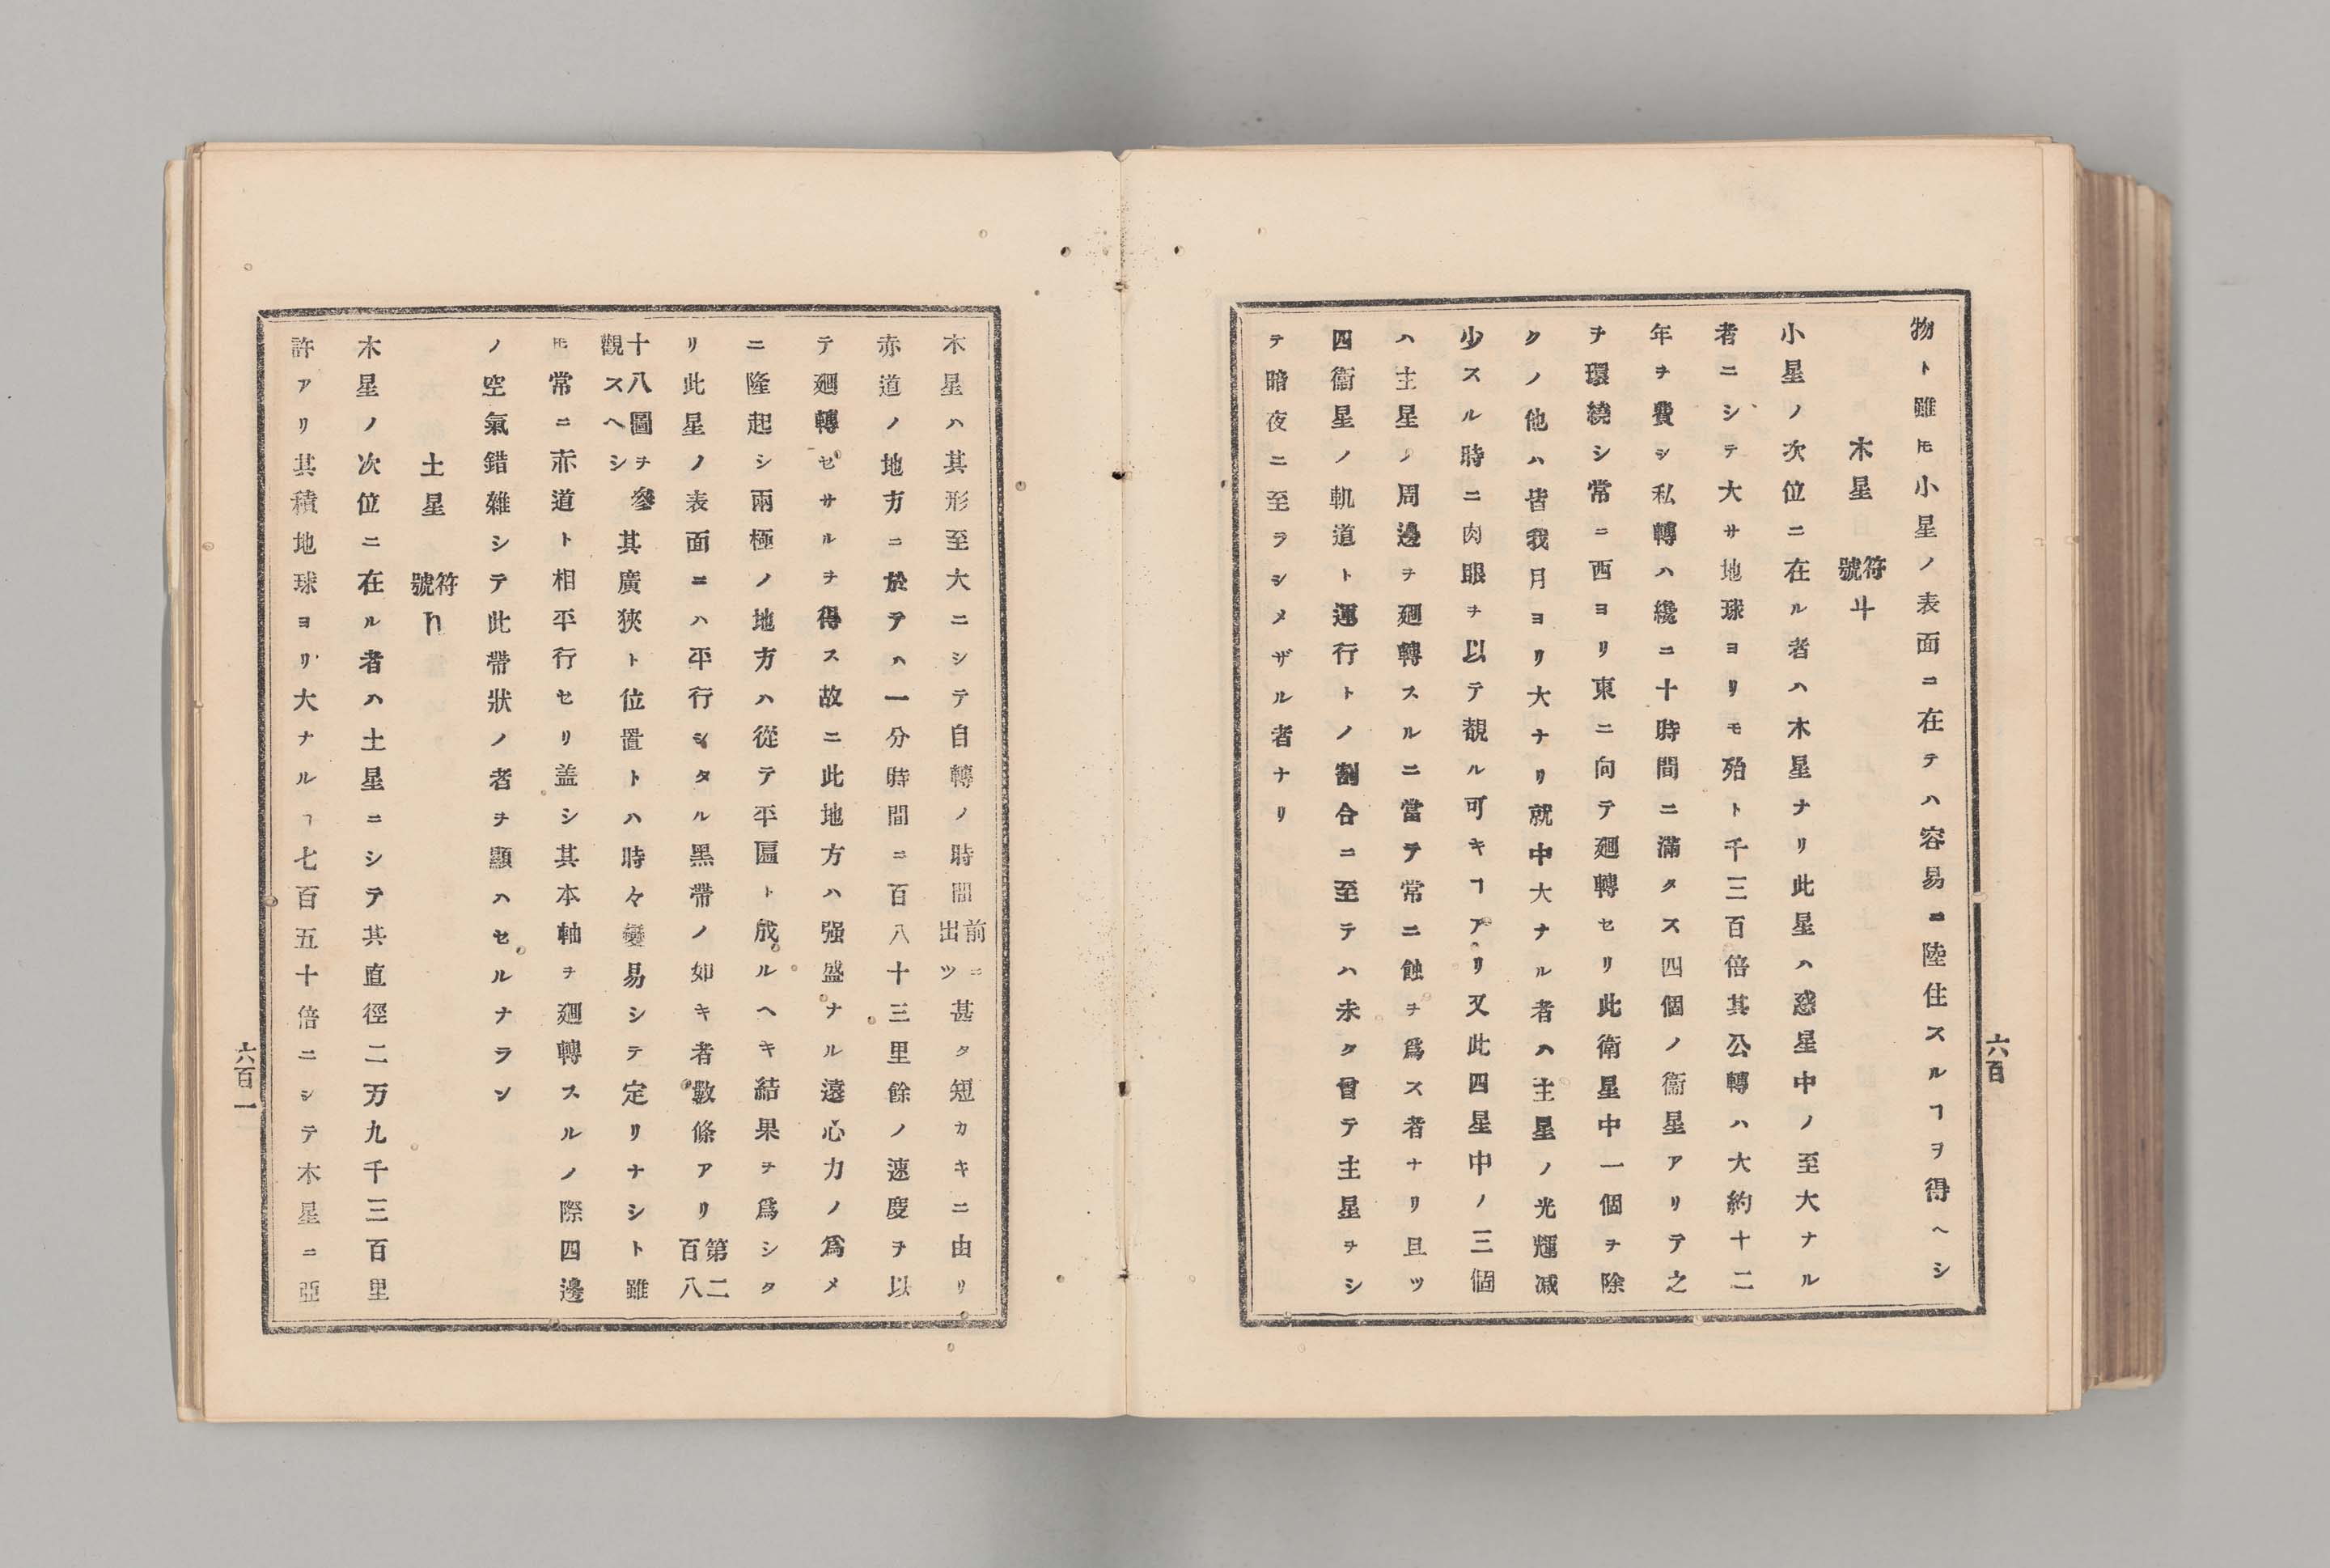 物ト雖𪜈小星ノ表面ニ在テハ容易ニ陸住スルヿヲ得ヘシ
木星 符號 ♃
小星ノ次位ニ在ル者ハ木星ナリ此星ハ惑星中ノ至大ナル
者ニシテ大サ地球ヨリモ殆ト千三百倍其公轉ハ大約十二
年ヲ費シ私轉ハ纔ニ十時間ニ滿タス四個ノ衞星アリテ之
ヲ環繞シ常ニ西ヨリ東ニ向テ廻轉セリ此衛星中一個ヲ除
クノ他ハ皆我月ヨリ大ナリ就中大ナル者ハ主星ノ光輝减
少スル時ニ肉眼ヲ以テ覩ル可キヿアリ又此四星中ノ三個
ハ主星ノ周邊ヲ廻轉スルニ當テ常ニ蝕ヲ爲ス者ナリ且ツ
四衞星ノ軌道ト運行トノ割合ニ至テハ未タ曾テ主星ヲシ
テ暗夜ニ至ラシメザル者ナリ
六百
木星ハ其形至大ニシテ自轉ノ時間前ニ出ツ甚タ短カキニ由リ
赤道ノ地方ニ於テハ一分時間ニ百八十三里餘ノ速度ヲ以
テ廻轉セサルヲ得ス故ニ此地方ハ强盛ナル遠心力ノ爲メ
ニ隆起シ兩極ノ地方ハ從テ平匾ト成ルヘキ結果ヲ爲シタ
リ此星ノ表面ニハ平行シタル黑帶ノ如キ者數條アリ第二百八
十八圖ヲ參觀スヘシ其廣狹ト位置トハ時々變易シテ定リナシト雖
𪜈常ニ赤道ト相平行セリ盖シ其本軸ヲ廻轉スルノ際四邊
ノ空氣錯雜シテ此帶狀ノ者ヲ顯ハセルナラン
土星 符號 ♄
木星ノ次位ニ在ル者ハ土星ニシテ其直徑二万九千三百里
許アリ其積地球ヨリ大ナルヿ七百五十倍ニシテ木星ニ亞
六百一